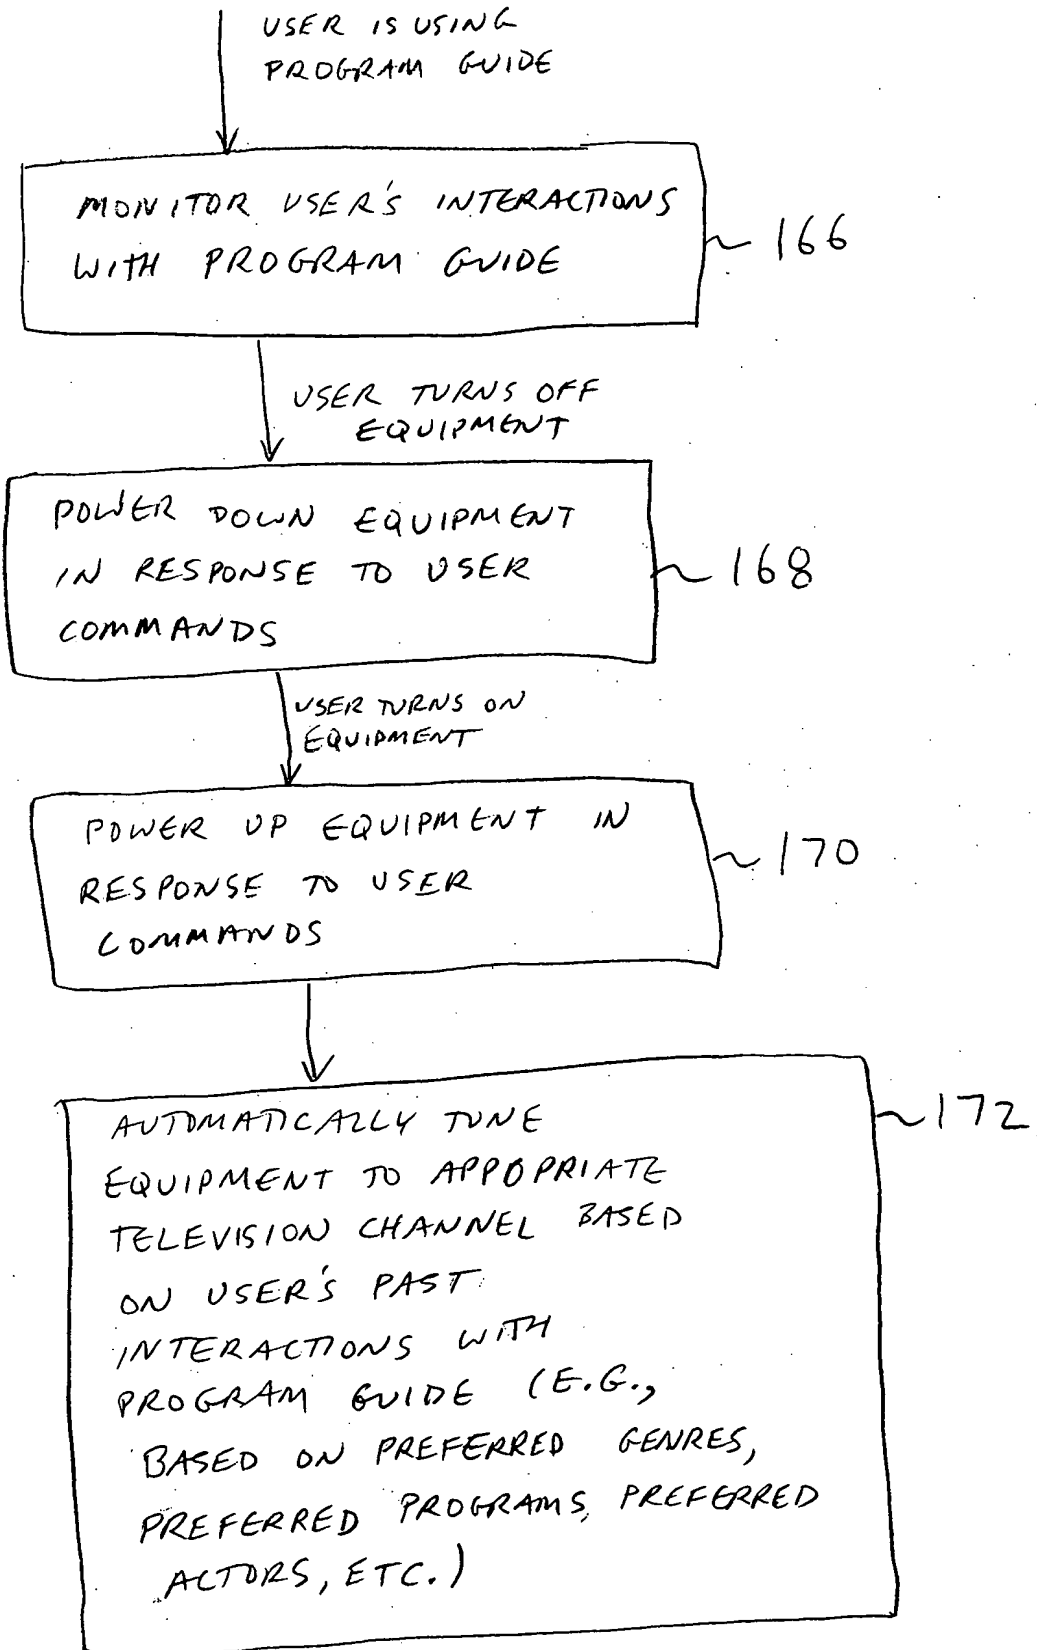 USER IS USING
PROGRAM GUIDE
MONITOR USER'S INTERACTIONS
WITH PROGRAM GUIDE
166
USER TURNS OFF
EQUIPMENT
POWER DOWN EQUIPMENT
IN RESPONSE TO USER
COMMANDS
168
USER TURNS ON
EQUIPMENT
POWER UP EQUIPMENT IN
RESPONSE TO USER
COMMANDS
170
AUTOMATICALLY TUNE
EQUIPMENT TO APPOPRIATE
TELEVISION CHANNEL BASED
ON USER'S PAST
INTERACTIONS WITH
PROGRAM GUIDE (E.G.,
BASED ON PREFERRED GENRES,
PREFERRED PROGRAMS, PREFERRED
ACTORS, ETC.)
172